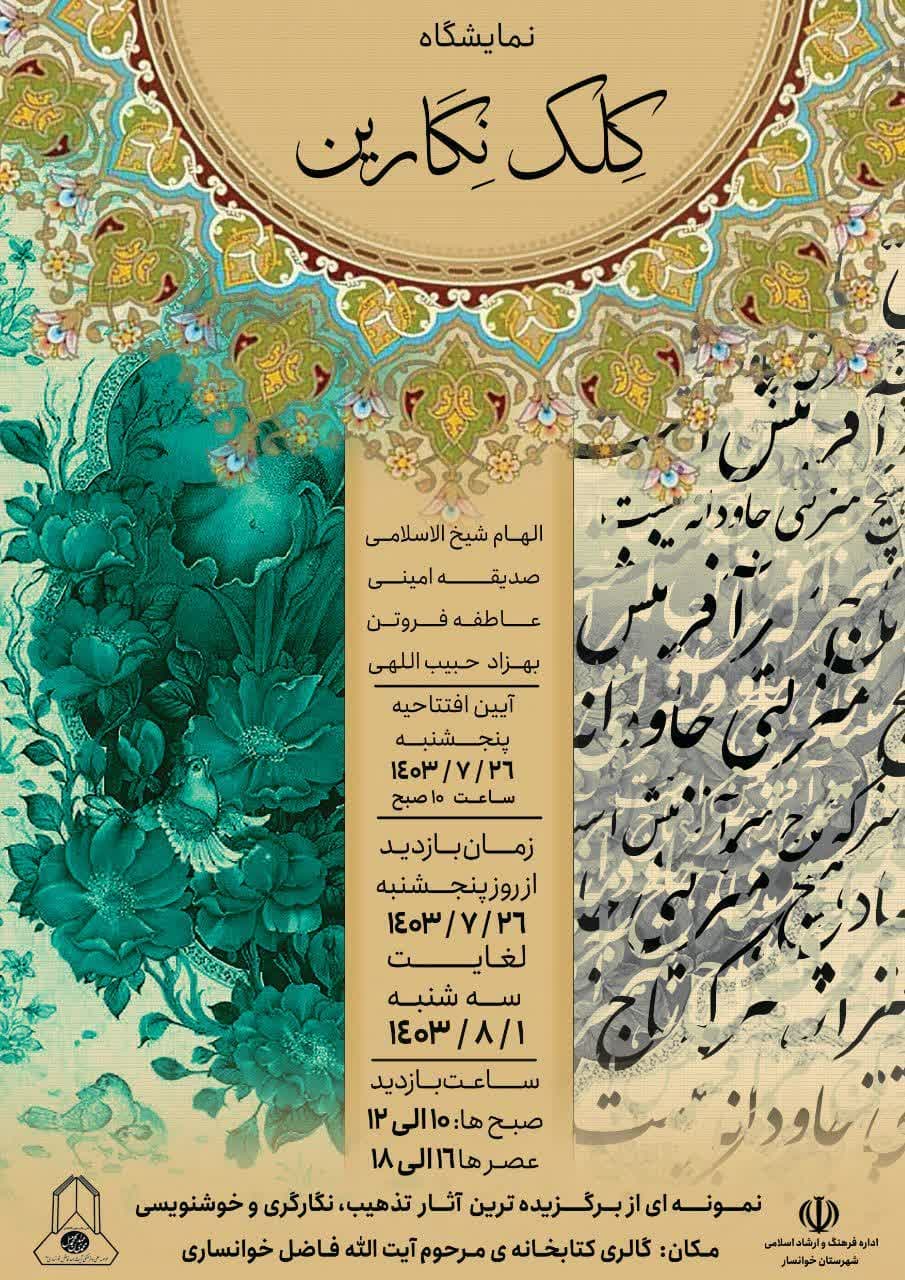 نمایشگاه
کِلک نِگارین
الهام شیخ الاسلامی
صدیقه امینی
عاطفه فروتن
بهزاد حبیب اللهی
آیین افتتاحیه
پنجشنبه
۱۴۰۳ / ۷ / ۲۶
ساعت ۱۰ صبح
زمان بازدید
از روز پنجشنبه
۱۴۰۳ / ۷ / ۲۶
لغایت
سه شنبه
۱۴۰۳ / ۸ / ۱
ساعت بازدید
صبح ها: ۱۰ الی ۱۲
عصر ها ۱۶ الی ۱۸
نمونه ای از برگزیده ترین آثار تذهیب، نگارگری و خوشنویسی
مکان: گالری کتابخانه ی مرحوم آیت الله فاضل خوانساری
اداره فرهنگ و ارشاد اسلامی
شهرستان خوانسار
آفرینش است
هیچ منزلتی جاودانه نیست
آفرینش
هیچ منزلتی جاودانه
هیچ منزلتی
تاج